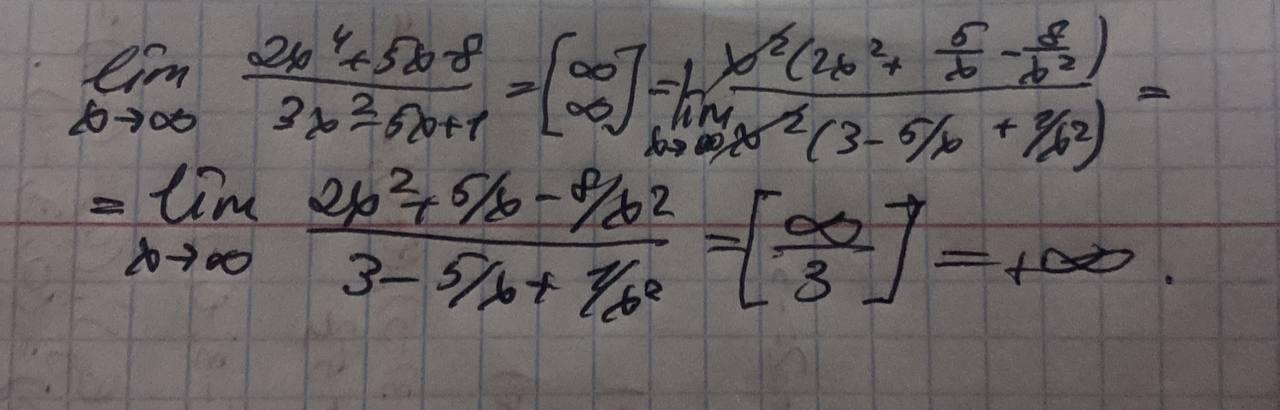 lim x→∞ (2x⁴+5x-8)/(3x²-5x+1) = [∞/∞] = lim x→∞ x²(2x²+ 5/x - 8/x²)/x²(3-5/x + 1/x²) =
= lim x→∞ (2x²+5/x-8/x²)/(3-5/x+1/x²) = [∞/3] = +∞.